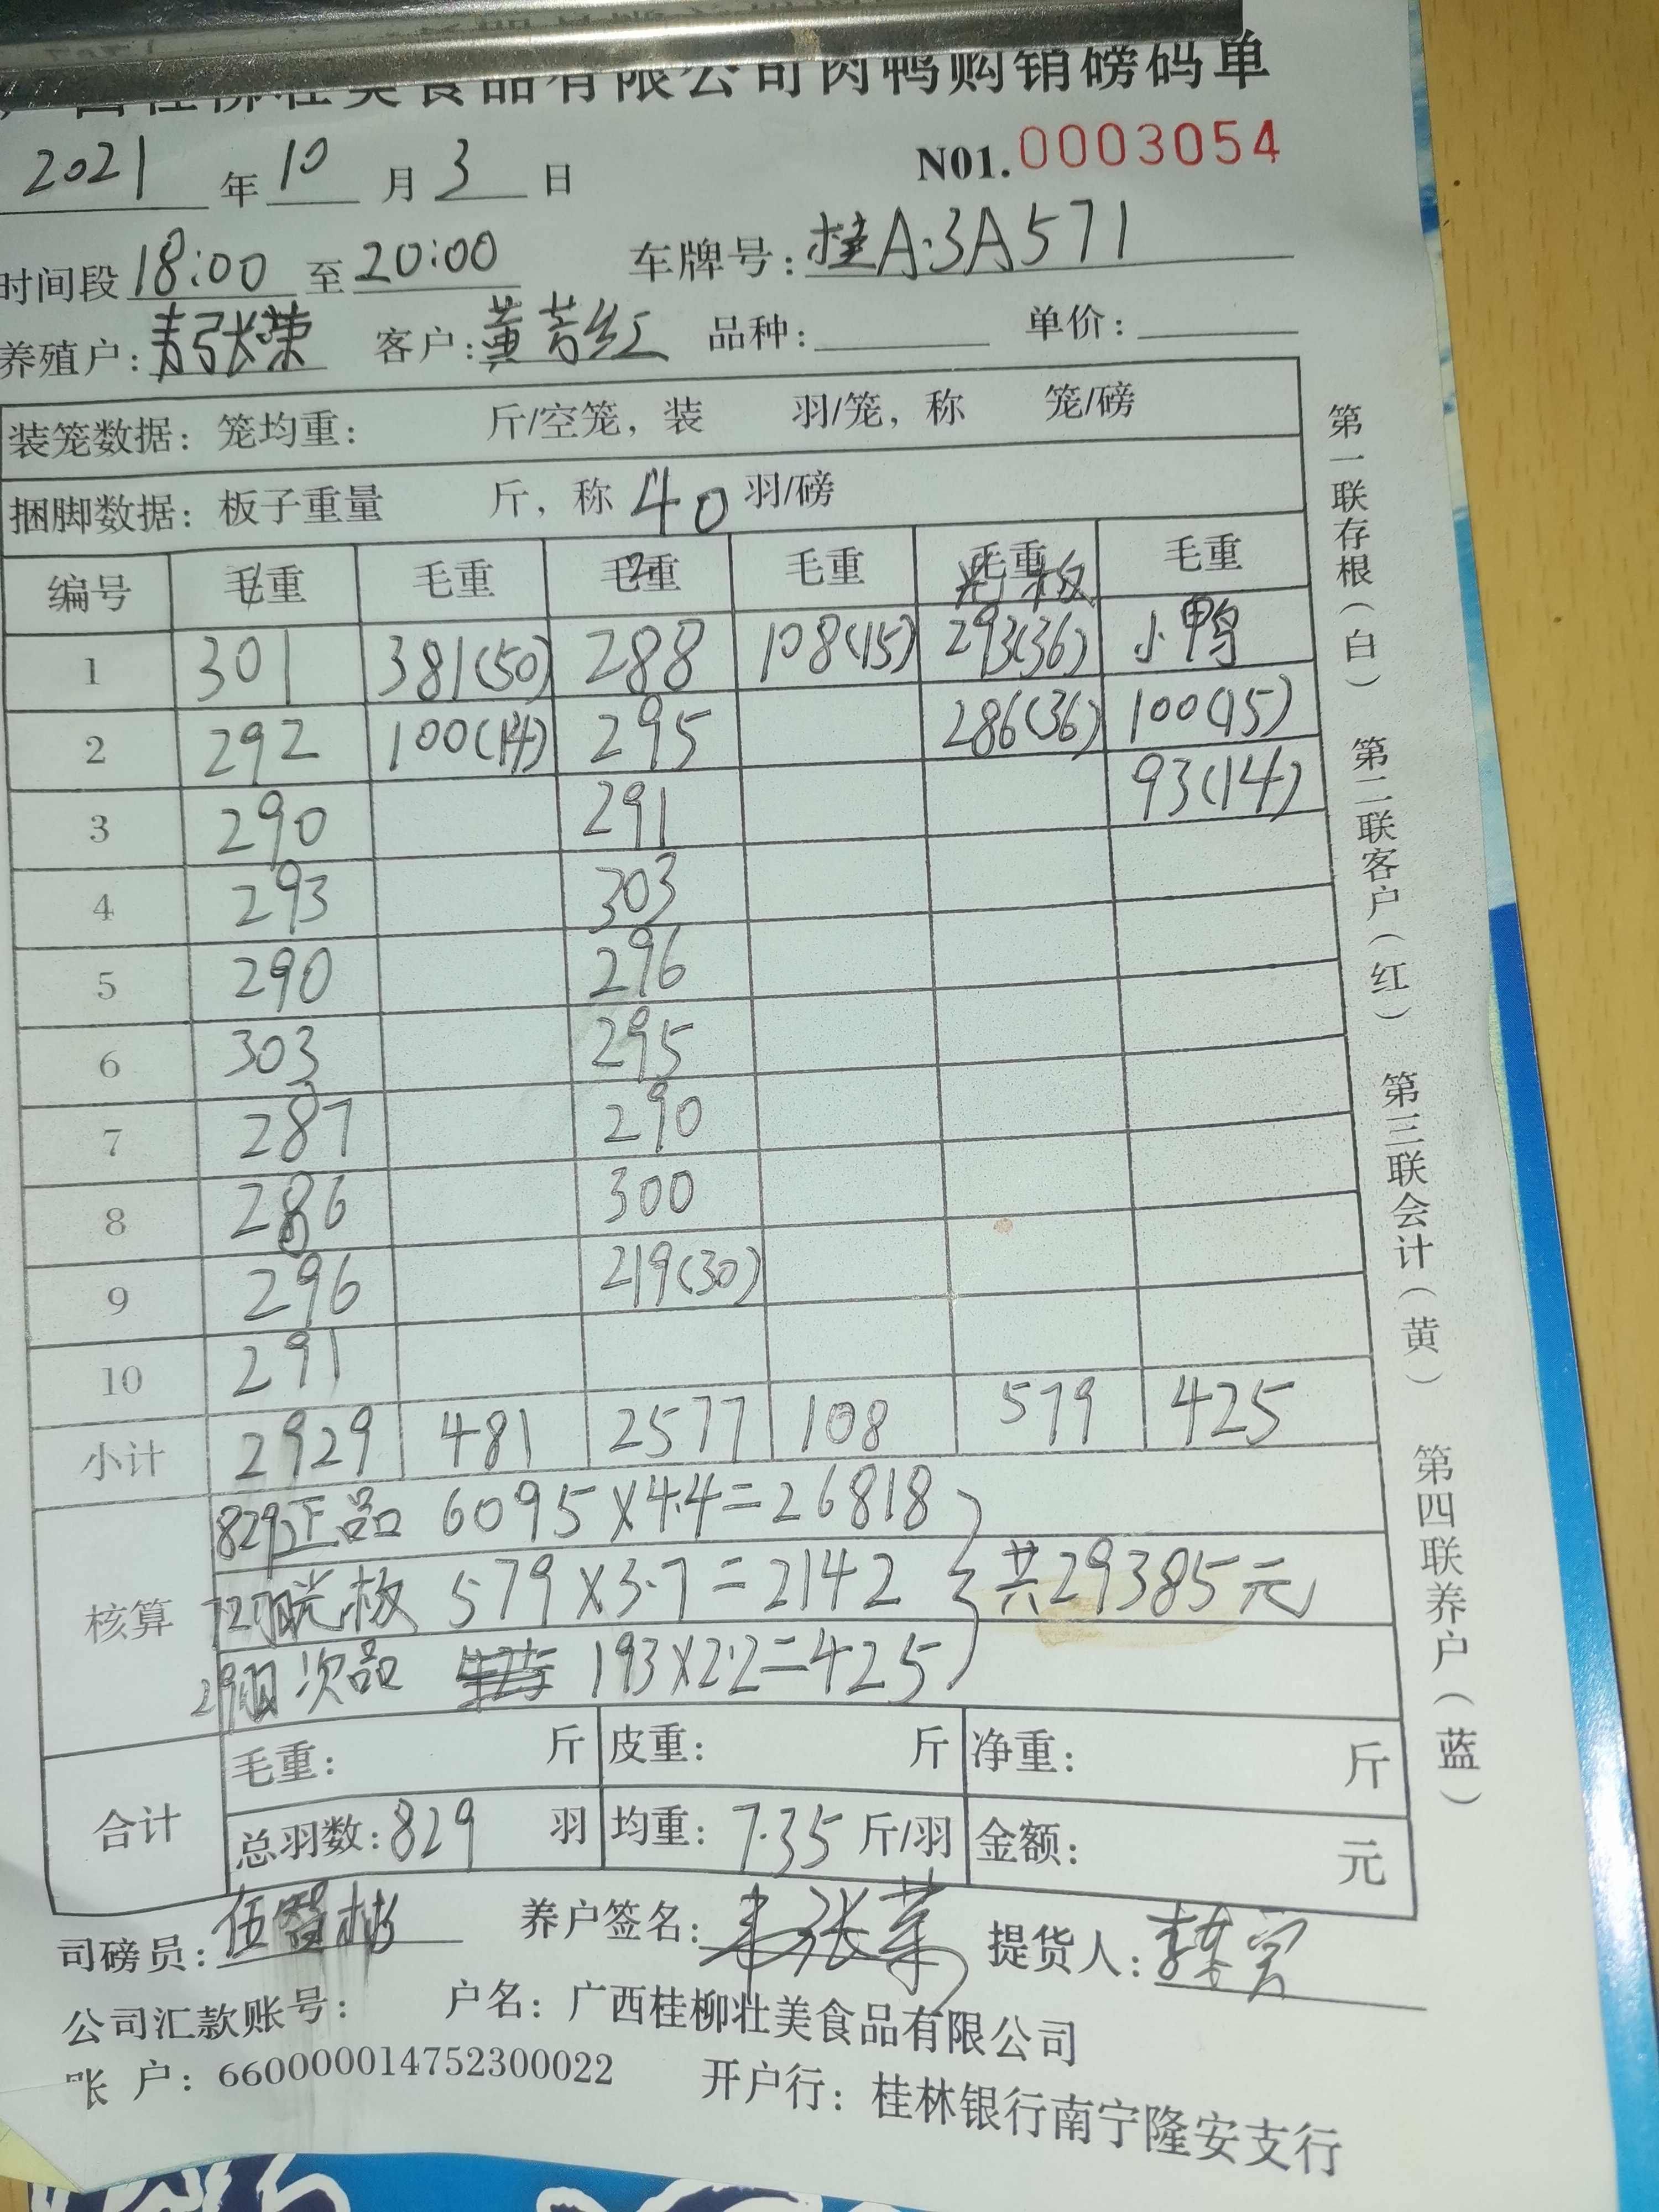 广西桂柳壮美食品有限公司肉鸭购销磅码单
2021 年 10 月 3 日 N01. 0003054
时间段 18:00 至 20:00 车牌号: 桂A·3A571
养殖户: 韦张荣 客户: 黄芳红 品种: 单价:
装笼数据: 笼均重: 斤/空笼, 装 羽/笼, 称 笼/磅
捆脚数据: 板子重量 斤, 称 40 羽/磅
编号 毛重 毛重 毛重 毛重 毛重 毛重
1 301 381(50) 288 108(15) 293(36) 小鸭
2 292 100(14) 295 286(36) 100(15)
3 290 291 93(14)
4 293 303
5 290 296
6 303 295
7 287 290
8 286 300
9 296 219(30)
10 291
小计 2929 481 2577 108 579 425
核算
829羽正品 6095×4.4=26818
72羽光板 579×3.7=2142 共29385元
29羽次品 193×2.2=425
合计
毛重: 斤 皮重: 斤 净重: 斤
总羽数: 829 羽 均重: 7.35 斤/羽 金额: 元
司磅员: 养户签名: 韦张荣 提货人:
公司汇款账号: 户名: 广西桂柳壮美食品有限公司
账 户: 660000014752300022 开户行: 桂林银行南宁隆安支行
第一联存根(白) 第二联客户(红) 第三联会计(黄) 第四联养户(蓝)